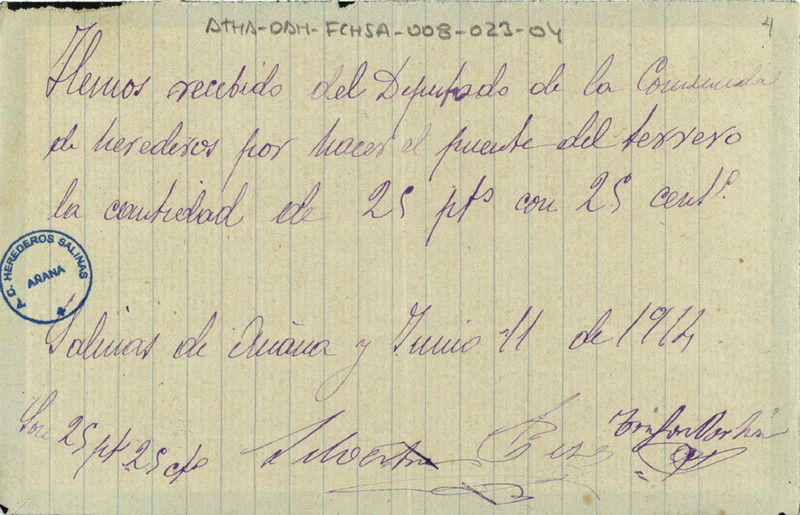 ATHA-DAH-FCHSA-008-023-04
4
Hemos recebido del Deputado de la Comunidad
de herederos por hacer el puente del terrero
la cantidad de 25 pts con 25 centº.
A C. HEREDEROS SALINAS
AÑANA
Salinas de Añana y Junio 11 de 1914
Son 25 pts 25 cts
Silvestre